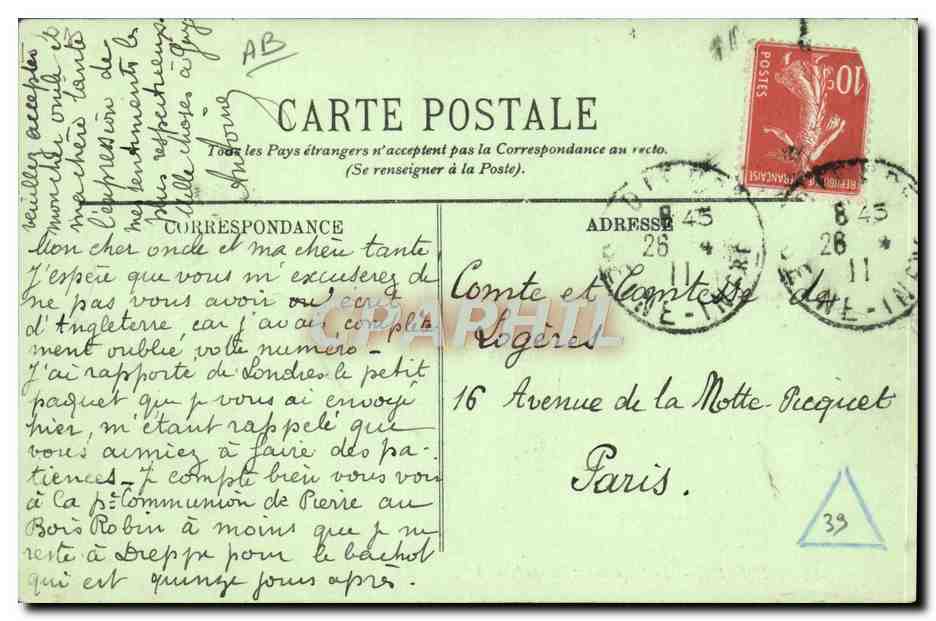 AB
CARTE POSTALE
Tous les Pays étrangers n'acceptent pas la Correspondance au recto.
(Se renseigner à la Poste).
CORRESPONDANCE
Mon cher oncle et ma chère tante
J'espère que vous m'excuserez de
ne pas vous avoir écrit
d'Angleterre, car j'avais complète
ment oublié votre numéro -
J'ai rapporté de Londres le petit
paquet que je vous ai envoyé
hier, m'étant rappelé que
vous aimiez à faire des pa-
tiences - Je compte bien vous voir
à la pre Communion de Pierre au
Bois Robin à moins que je ne
reste à Dieppe pour le bachot
qui est quinze jours après.
veuillez accepter
mon cher oncle et
ma chère tante
l'expression de
mes sentiments les
plus respectueux
Mille choses à Guy
ADRESSE
Comte et Comtesse de
Logères
16 Avenue de la Motte-Picquet
Paris.
10c
POSTES
REPUBLIQUE FRANÇAISE
8 45
26 4
11
NE-INFRE
8 45
26 4
11
NE-INF
CPARHIL
39